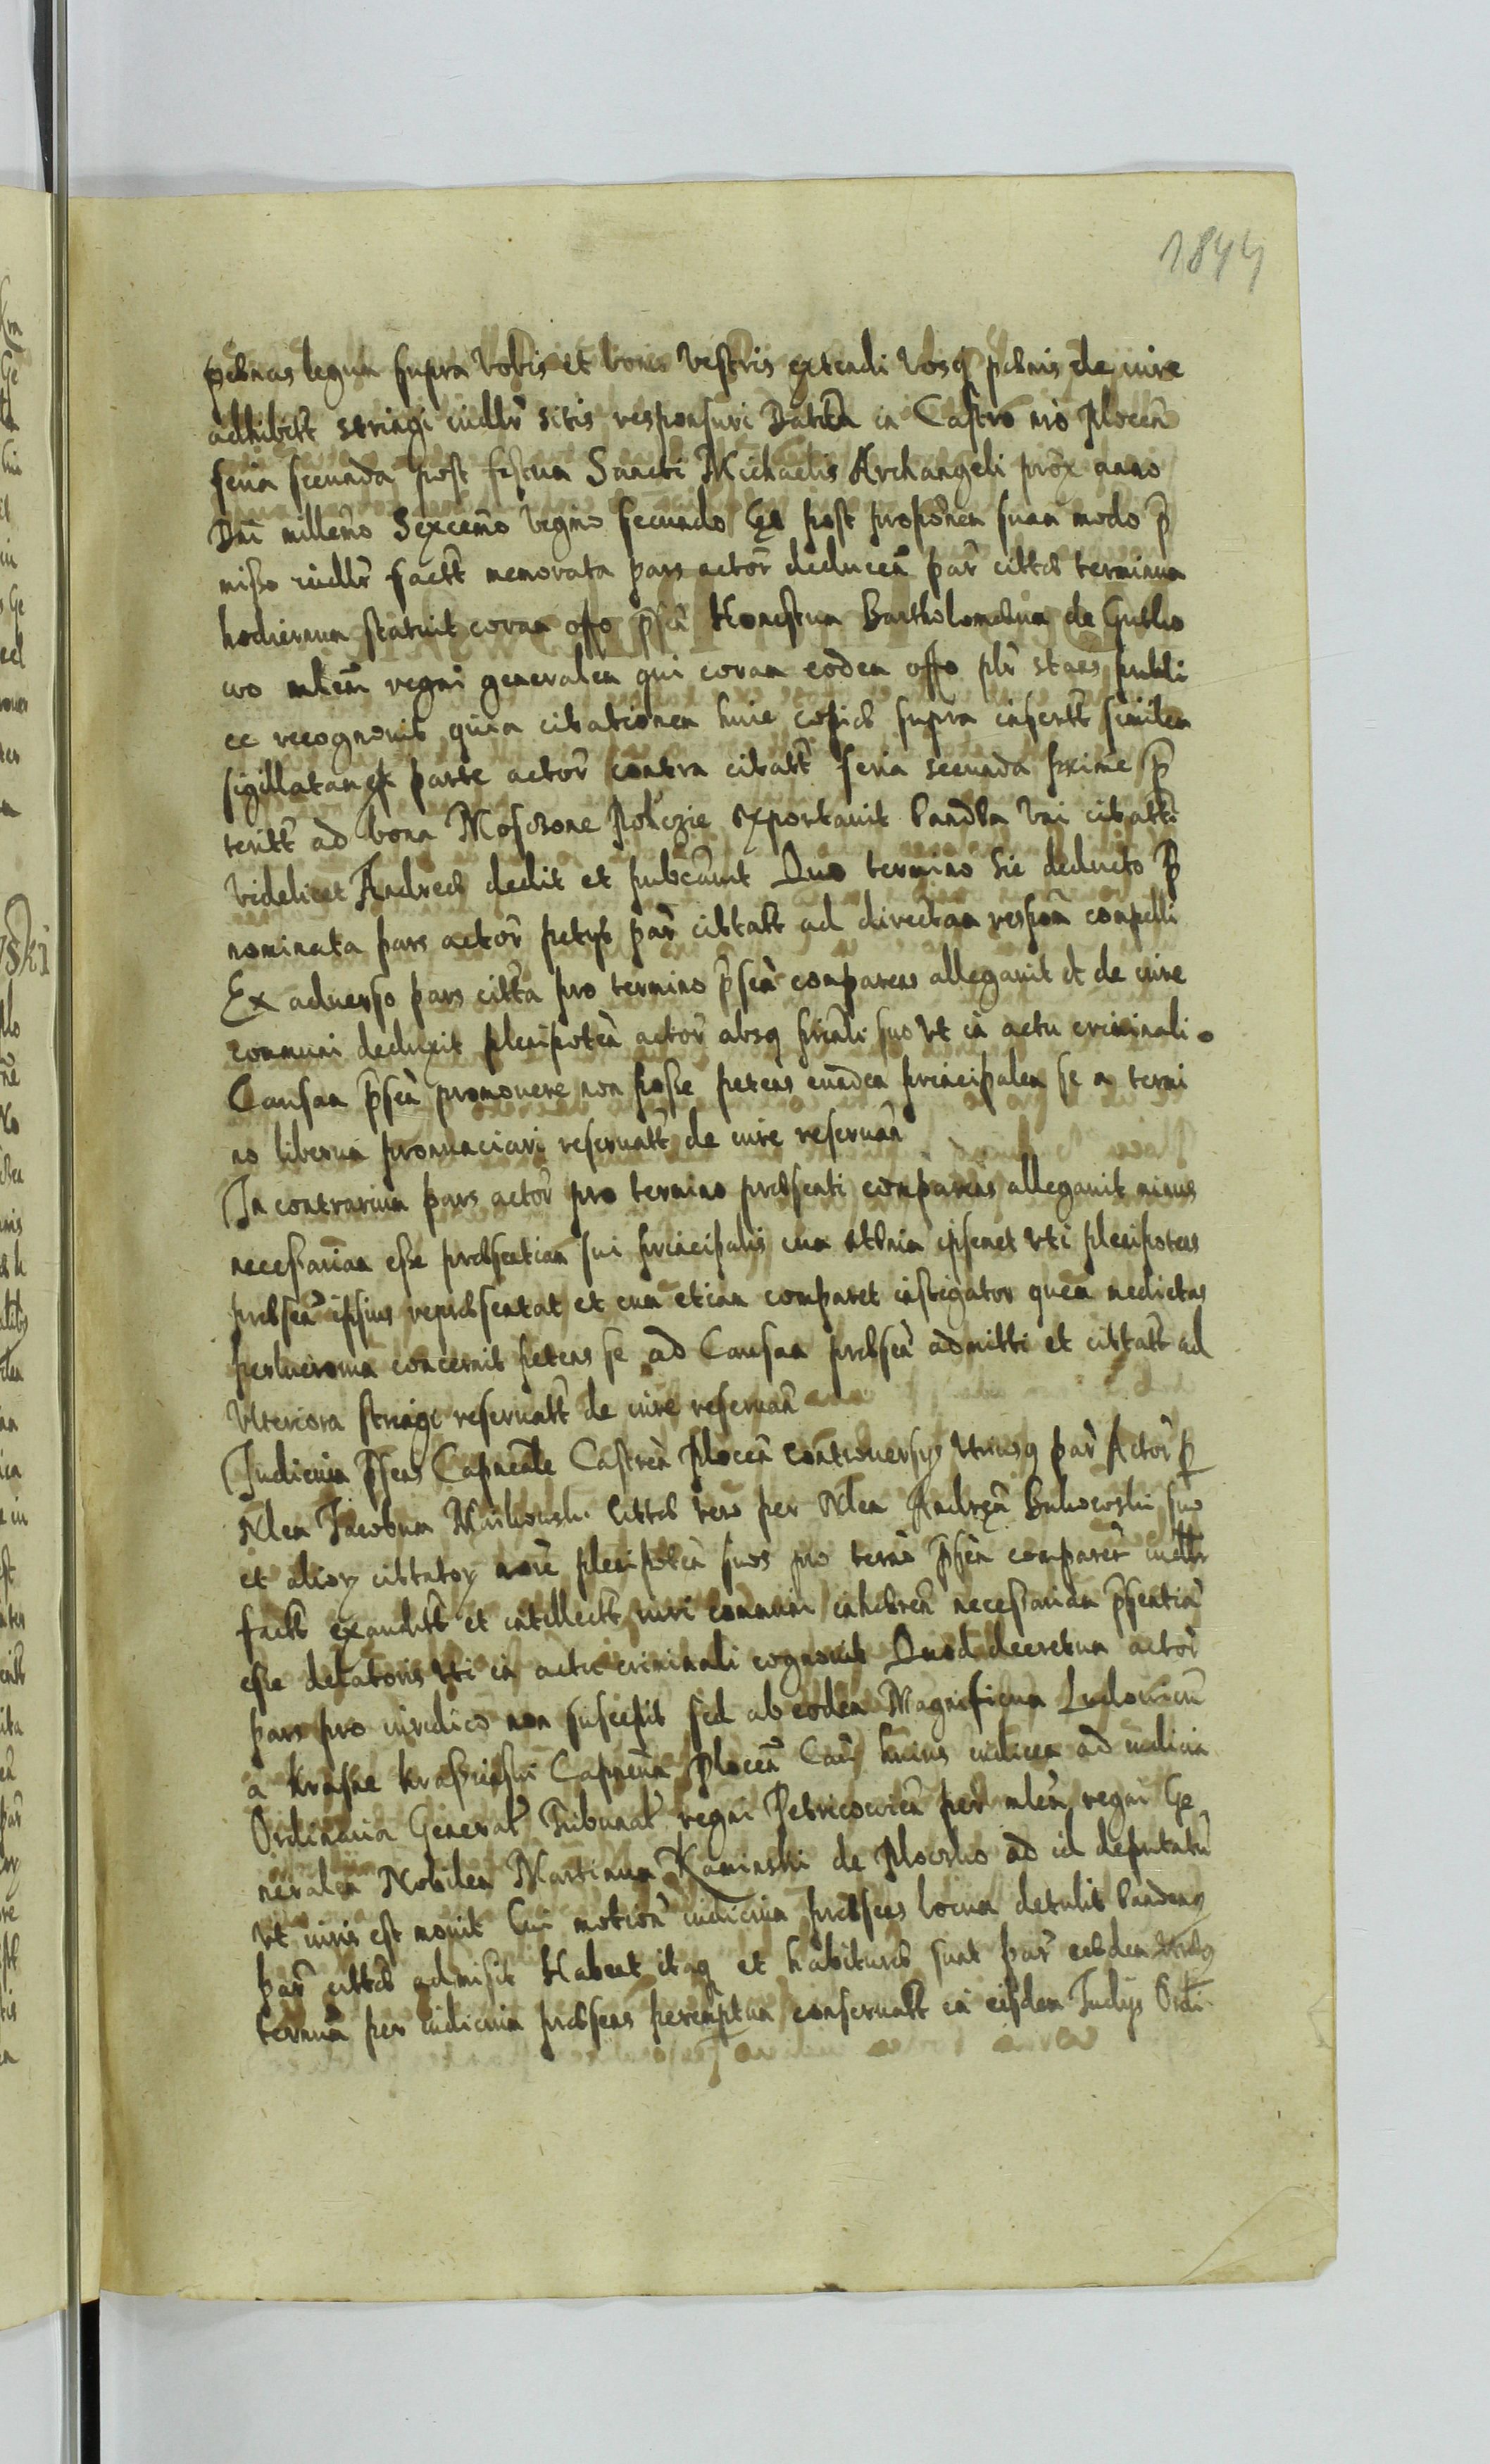 1844
pœnas legum supra vobis et bonis vestris extendi vosq pœnis de iure
adhibitt stringi iudltr sitis responsuri Datum in Castro nro Plocen
feria secunda post festum Sancti Michaelis Archangeli prox anno
Dni millemo Sexcemo vegmo secundo Qa post proponem suam modo p
misso iudltr factt memorata pars actor deducen par cittæ terminum
hodiernum statuit coram offo psen Honestum Bartholomæum de
wo mlem regni generalem qui coram eodem offo plr staes publi
ce recognovit quia citationem huic copiæ supra insertt similem
sigillatam ex parte actor contra citatt feria secunda pxime p
teritt ad bona Mosczone Policzie exportauit eandem vni citatt
videlicet Andreæ dedit et pubcauit Quo termino sic deducto p
nominata pars actor petyt par cittatt ad directam respon conpelli
Ex aduerso pars citta pro termino psen comparens allegauit et de iure
communi deduxit plenipoten actor absq princli suo vt in actu criminali
Causam psen promouere non posse petens eundem principalem se a termi
no liberum pronunciari reseruatt de iure reseruan
In contrarium pars actor pro termino præsenti comparens allegauit minus
necessariam esse præsentiam sui principalis cum etenim ipsemet vti plenipotens
præsen ipsius repræsentat et cum etiam comparet instigator quem medietas
perlucrorum concernit petens se ad Causam præsen admitti et cittatt ad
vlteriora stringi reseruatt de iure reseruan
Iudicium psens Capneale Castren Plocen controuersys vtriusq par Actor p
Nlem Jacobum Cittæ vero per Nlem Andream Bukowski suo
et alior cittator noie plenipoten suos pro termo psen comparen iudltr
factt exauditt et intellectt iuri communi inhæren necessariam psentiam
esse delatoris vti in actu criminali cognouit Quod decretum actor
pars pro iuredico non suscepit sed ab eodem Magnificum Ludouicum
a Krasne Krassinski Capneum Plocen Cau huius iudicem ad iudicia
Ordinaria General Tribunal regni Petricouien per mlem regni Ge
neralem Nobilem Martinum Kaminski de Plocsko ad id deputatu
vt iuris est mouit Cui motion iudicium præsens locum detulit eandemq
par cittæ admisit Habent itaq et habituræ sunt par eædem
termum per iudicium præsens peremptum conseruatt in eisdem Iudys Ordi